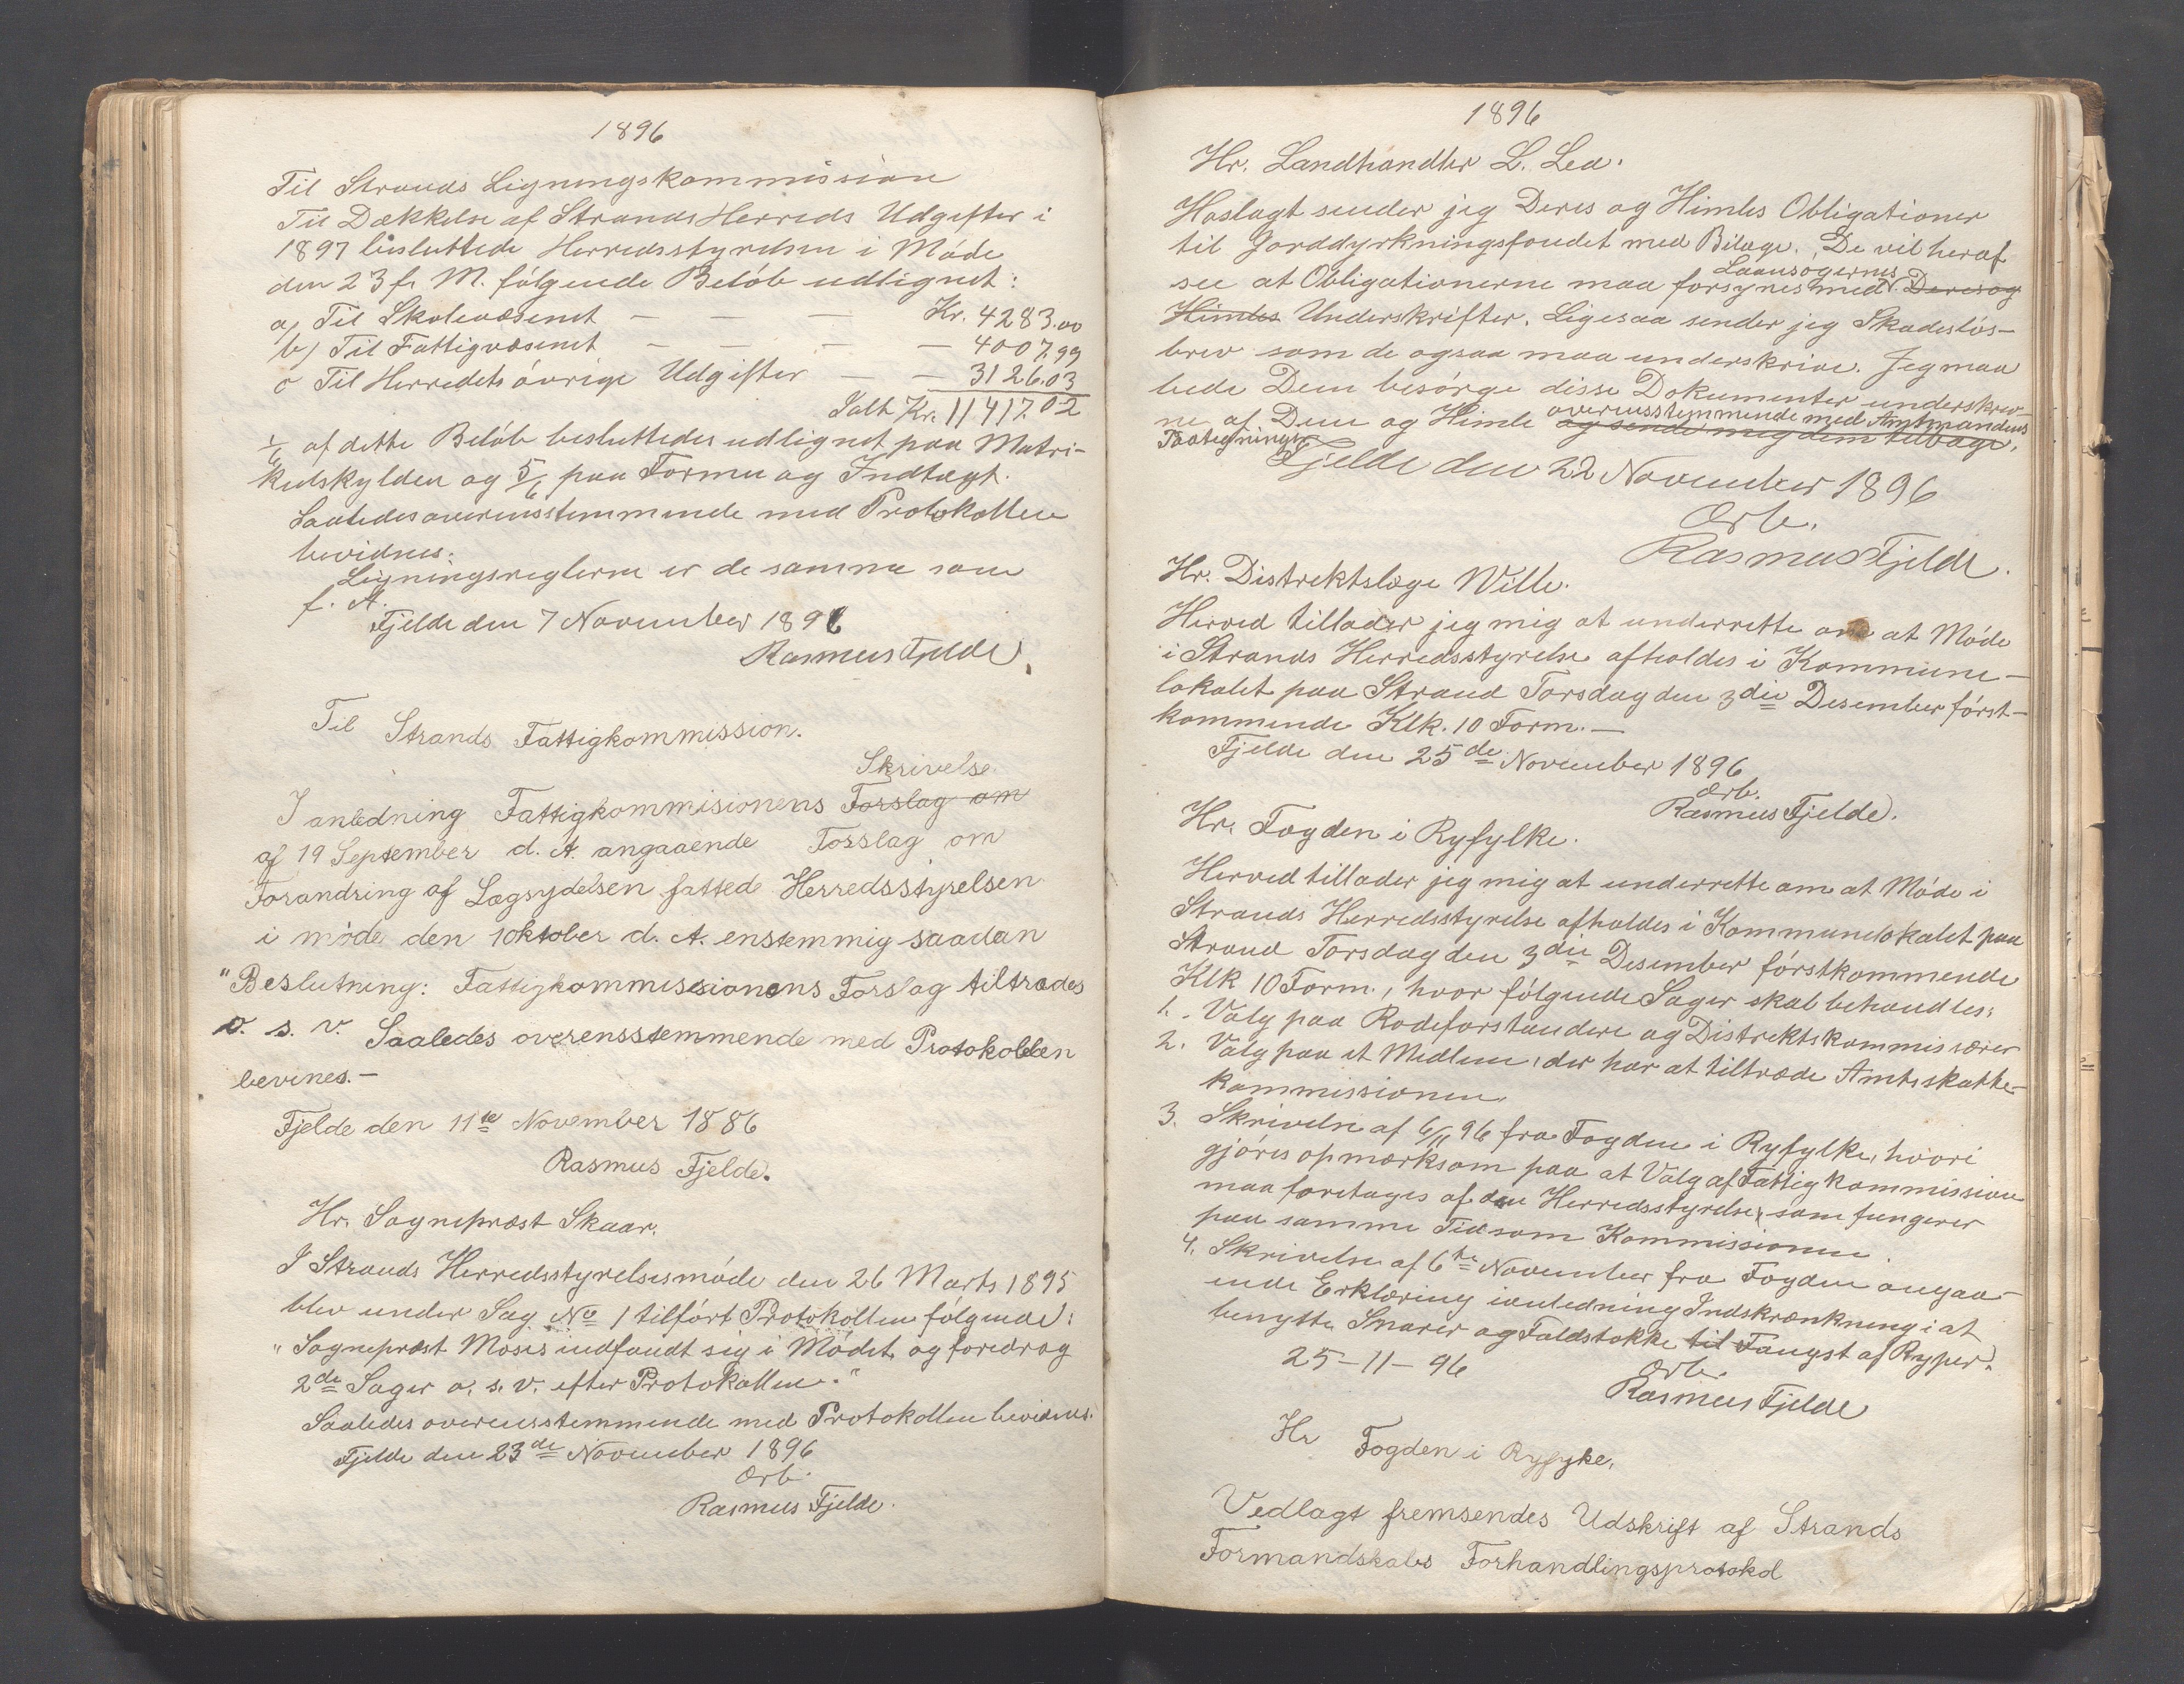 1896
Til Strands Ligningskommission
Til Dækkelse af Strands Herreds Udgifter i
1897 besluttede Herredsstyrelsen i Møde
den 23 f. M. følgende Beløb udlignet:
a) Til Skolevæsenet — — — Kr. 4283.00
b) Til Fattigvæsenet — — — — 4007.99
c Til Herredets øvrige Udgifter — — 3126.03
Ialt Kr. 11417.02
1/6 af dette Beløb besluttedes udlignet paa Matri-
kulskylden og 5/6 paa Formue og Indtægt.
Saaledes overensstemmende med Protokollen
bevidnes.
Ligningsreglerne er de samme som
f. A.
Fjelde den 7 November 1896
Rasmus Fjelde.
Til Strands Fattigkommission.
Skrivelse
I anledning Fattigkommisionens Forslag om
af 19 September d. A. angaaende Forslag om
Forandring af Lægsydelsen fattede Herredsstyrelsen
i møde den 1 oktober d. A. enstemmig saadan
"Beslutning: Fattigkommissionens Forslag tiltrædes
o. s. v. Saaledes overensstemmende med Protokollen
bevines.—
Fjelde den 11te November 1886
Rasmus Fjelde.
Hr. Sogneprest Skaar.
I Strands Herredsstyrelsesmøde den 26 Marts 1895
blev under Sag No 1 tilført Protokollen følgende:
"Sogneprest Moses indfandt sig i Mødet og foredrog
2de Sager o. s. v. efter Protokollen."
Saaledes overensstemmende med Protokollen bevidnes.
Fjelde den 23de November 1896
Ørb.
Rasmus Fjelde.
1896
Hr. Landhandler L. Lea.
Hoslagt sender jeg Deres og Himles Obligationer
til Jorddyrkningsfondet med Bilage. De vil heraf
Laansøgernes
see at Obligationerne maa forsynes med Deres og
Himles Underskrifter. Ligesaa sender jeg Skadesløs-
brev som de ogsaa maa underskrive. Jeg maa
bede Dem besørge disse Dokumenter underskrev-
overensstemmende med Amtmandens
ne af Dem og Himle og sende mig dem tilbage.
Paategning
Fjelde den 22 November 1896
Ørb.
Rasmus Fjelde.
Hr. Distriktslæge Wille.
Herved tillader jeg mig at underrette om at Møde
i Strands Herredsstyrelse afholdes i Kommune-
lokalet paa Strand Torsdag den 3die Desember først-
kommende Klk. 10 Form.—
Fjelde den 25de November 1896
Ørb.
Rasmus Fjelde.
Hr. Fogden i Ryfylke.
Herved tillader jeg mig at underrette om at Møde i
Strands Herredsstyrelse afholdes i Kommunelokalet paa
Strand Torsdag den 3die Desember førstkommende
Klk 10 Form., hvor følgende Sager skal behandles:
1. Valg paa Rodeforstandere og Distriktskommissærer
2. Valg paa et Medlem, der har at tiltræde Amtsskatte-
kommissionen.
3. Skrivelse af 6/11 96 fra Fogden i Ryfylke, hvori
gjøres opmærksom paa at Valg af Fattigkommission
maa foretages af den Herredsstyrelse, som fungerer
paa samme Tid som Kommissionen.
4. Skrivelse af 6te November fra Fogden angaa-
ende Erklæring ianledning Indskrænkning i at
benytte Snarer og Faldstokke til Fangst af Ryper.
25-11-96
Ørb.
Rasmus Fjelde
Hr Fogden i Ryfyke.
Vedlagt fremsendes Udskrift af Strands
Formandskabs Forhandlingsprotokol